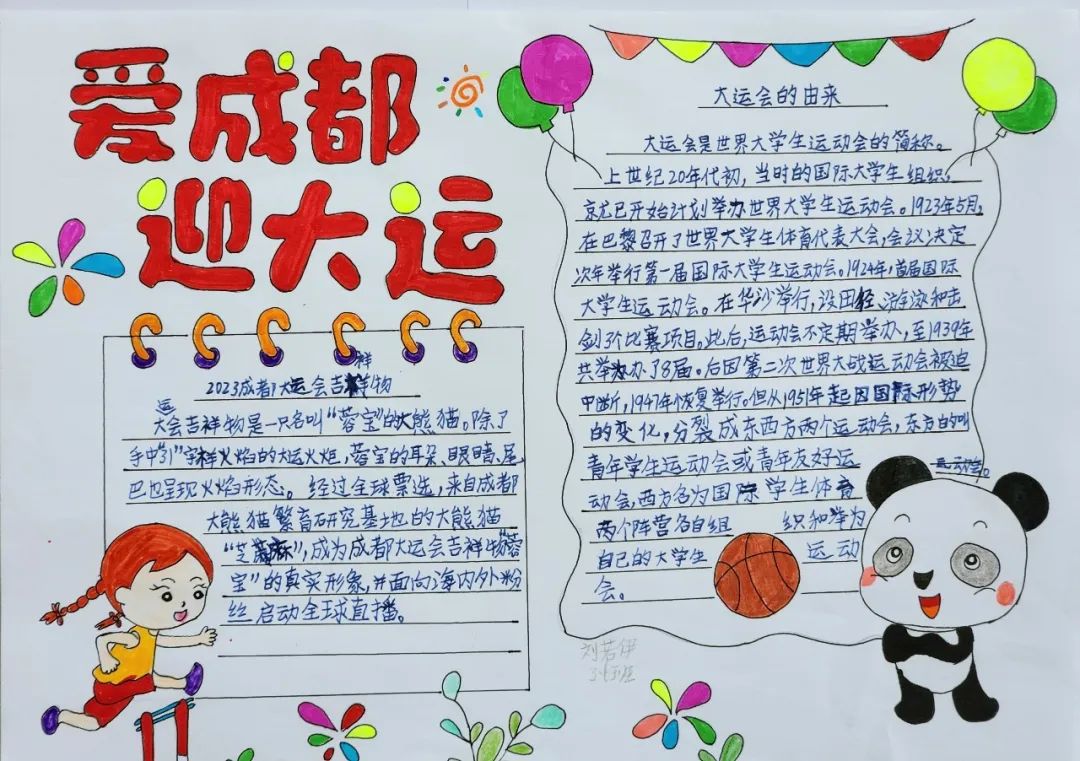 爱成都
迎大运
2023成都大运会吉祥物
大运会吉祥物是一只名叫“蓉宝”的大熊猫。除了
手中“31”字样火焰的大运火炬，蓉宝的耳朵、眼睛、尾
巴也呈现火焰形态。经过全球票选，来自成都
大熊猫繁育研究基地的大熊猫
“芝麻”，成为成都大运会吉祥物“蓉
宝”的真实形象，并面向海内外粉
丝启动全球直播。
大运会的由来
大运会是世界大学生运动会的简称。
上世纪20年代初，当时的国际大学生组织，
就已开始计划举办世界大学生运动会。1923年5月，
在巴黎召开了世界大学生体育代表大会，会议决定
次年举行第一届国际大学生运动会。1924年，首届国际
大学生运动会。在华沙举行，设田径、游泳和击
剑3个比赛项目。此后，运动会不定期举办，至1939年
共举办了8届。后因第二次世界大战运动会被迫
中断，1947年恢复举行。但从1951年起因国际形势
的变化，分裂成东西方两个运动会，东方的叫
青年学生运动会或青年友好运
动会，西方名为国际学生体育运动会。
两个阵营各自组织和举为
自己的大学生运动
会。
刘若伊